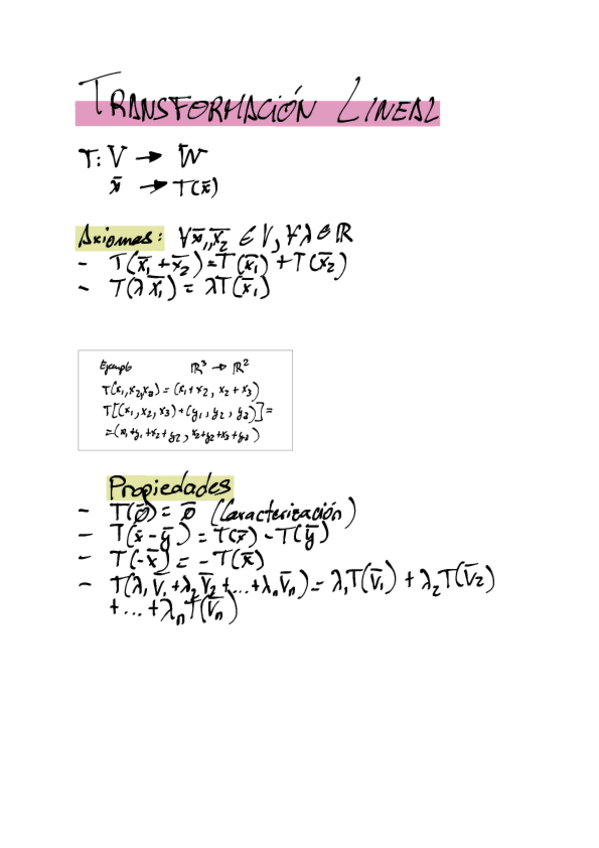 TRANSFORMACIÓN LINEAL
T: V → W
x̄ → T(x̄)
Axiomas: ∀x̄₁, x̄₂ ∈ V, ∀λ∈ℝ
- T(x̄₁ + x̄₂) = T(x̄₁) + T(x̄₂)
- T(λx̄₁) = λT(x̄₁)
Ejemplo ℝ³ → ℝ²
T(x₁, x₂, x₃) = (x₁ + x₂, x₂ + x₃)
T[(x₁, x₂, x₃) + (y₁, y₂, y₃)] =
= (x₁ + y₁ + x₂ + y₂, x₂ + y₂ + x₃ + y₃)
Propiedades
- T(ø̄) = ø̄ (Caracterización)
- T(x̄ - ȳ) = T(x̄) - T(ȳ)
- T(-x̄) = -T(x̄)
- T(λ₁v̄₁ + λ₂v̄₂ + ... + λₙv̄ₙ) = λ₁T(v̄₁) + λ₂T(v̄₂)
+ ... + λₙT(v̄ₙ)